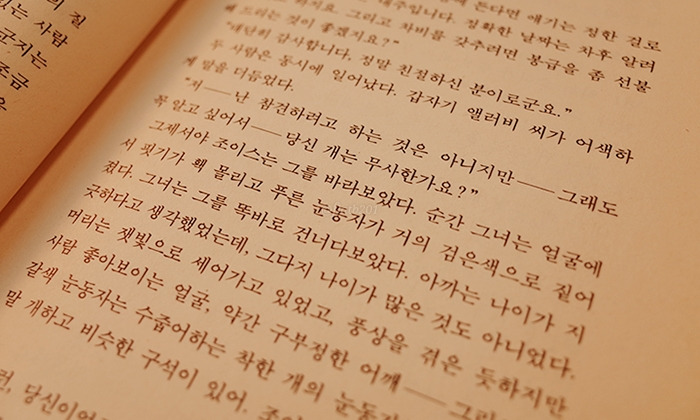 의 질
있는 사람
군지는
조금
을
내주입니다. 정확한 날짜는 차후 알려
든다면 얘기는 정한 걸로
하지요. 그리고 차비를 갖추려면 봉급을 좀 선불
해 드리는 것이 좋겠지요?”
“대단히 감사합니다, 정말 친절하신 분이로군요.”
두 사람은 동시에 일어났다. 갑자기 앨러비 씨가 어색하
게 말을 더듬었다.
“저──난 참견하려고 하는 것은 아니지만──그래도
꼭 알고 싶어서──당신 개는 무사한가요?”
그제서야 조이스는 그를 바라보았다. 순간 그녀는 얼굴에
서 핏기가 홱 몰리고 푸른 눈동자가 거의 검은색으로 짙어
졌다. 그녀는 그를 똑바로 건너다보았다. 아까는 나이가 지
긋하다고 생각했었는데, 그다지 나이가 많은 것도 아니었다.
머리는 잿빛으로 세어가고 있었고, 풍상을 겪은 듯하지만
사람 좋아보이는 얼굴, 약간 구부정한 어깨──그리
갈색 눈동자는 수줍어하는 착한 개의 눈동자
말 개하고 비슷한 구석이 있어. 조이
런, 당신이었